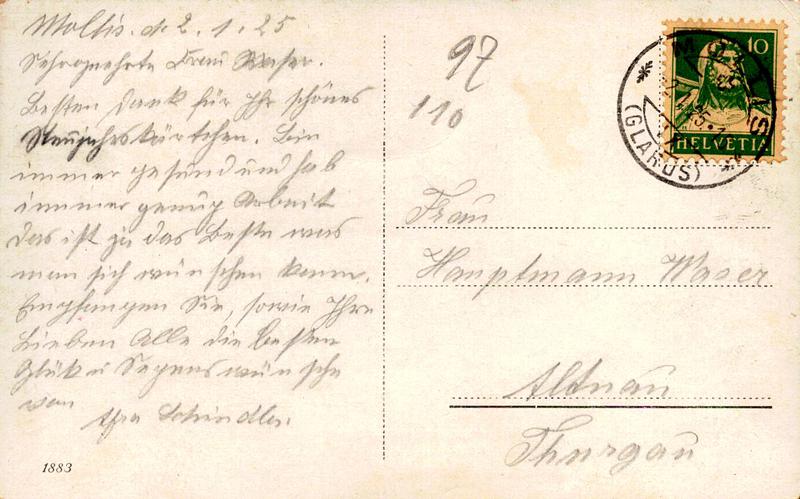 Mollis. d. 2. 1. 25
Sehrgeehrte Frau Waser.
Besten Dank für Ihr schönes
Neujahrskärtchen. Bin
immer gesund und hab
immer genug Arbeit
das ist ja das Beste was
man sich wünschen kann.
Empfangen Sie, sowie Ihre
Lieben Alle die besten
Glük u Segenswünsche
von
Schindler.
1883
97
110
10
HELVETIA
MOLLIS
(GLARUS)
Frau
Hauptmann Waser
Altnau
Thurgau